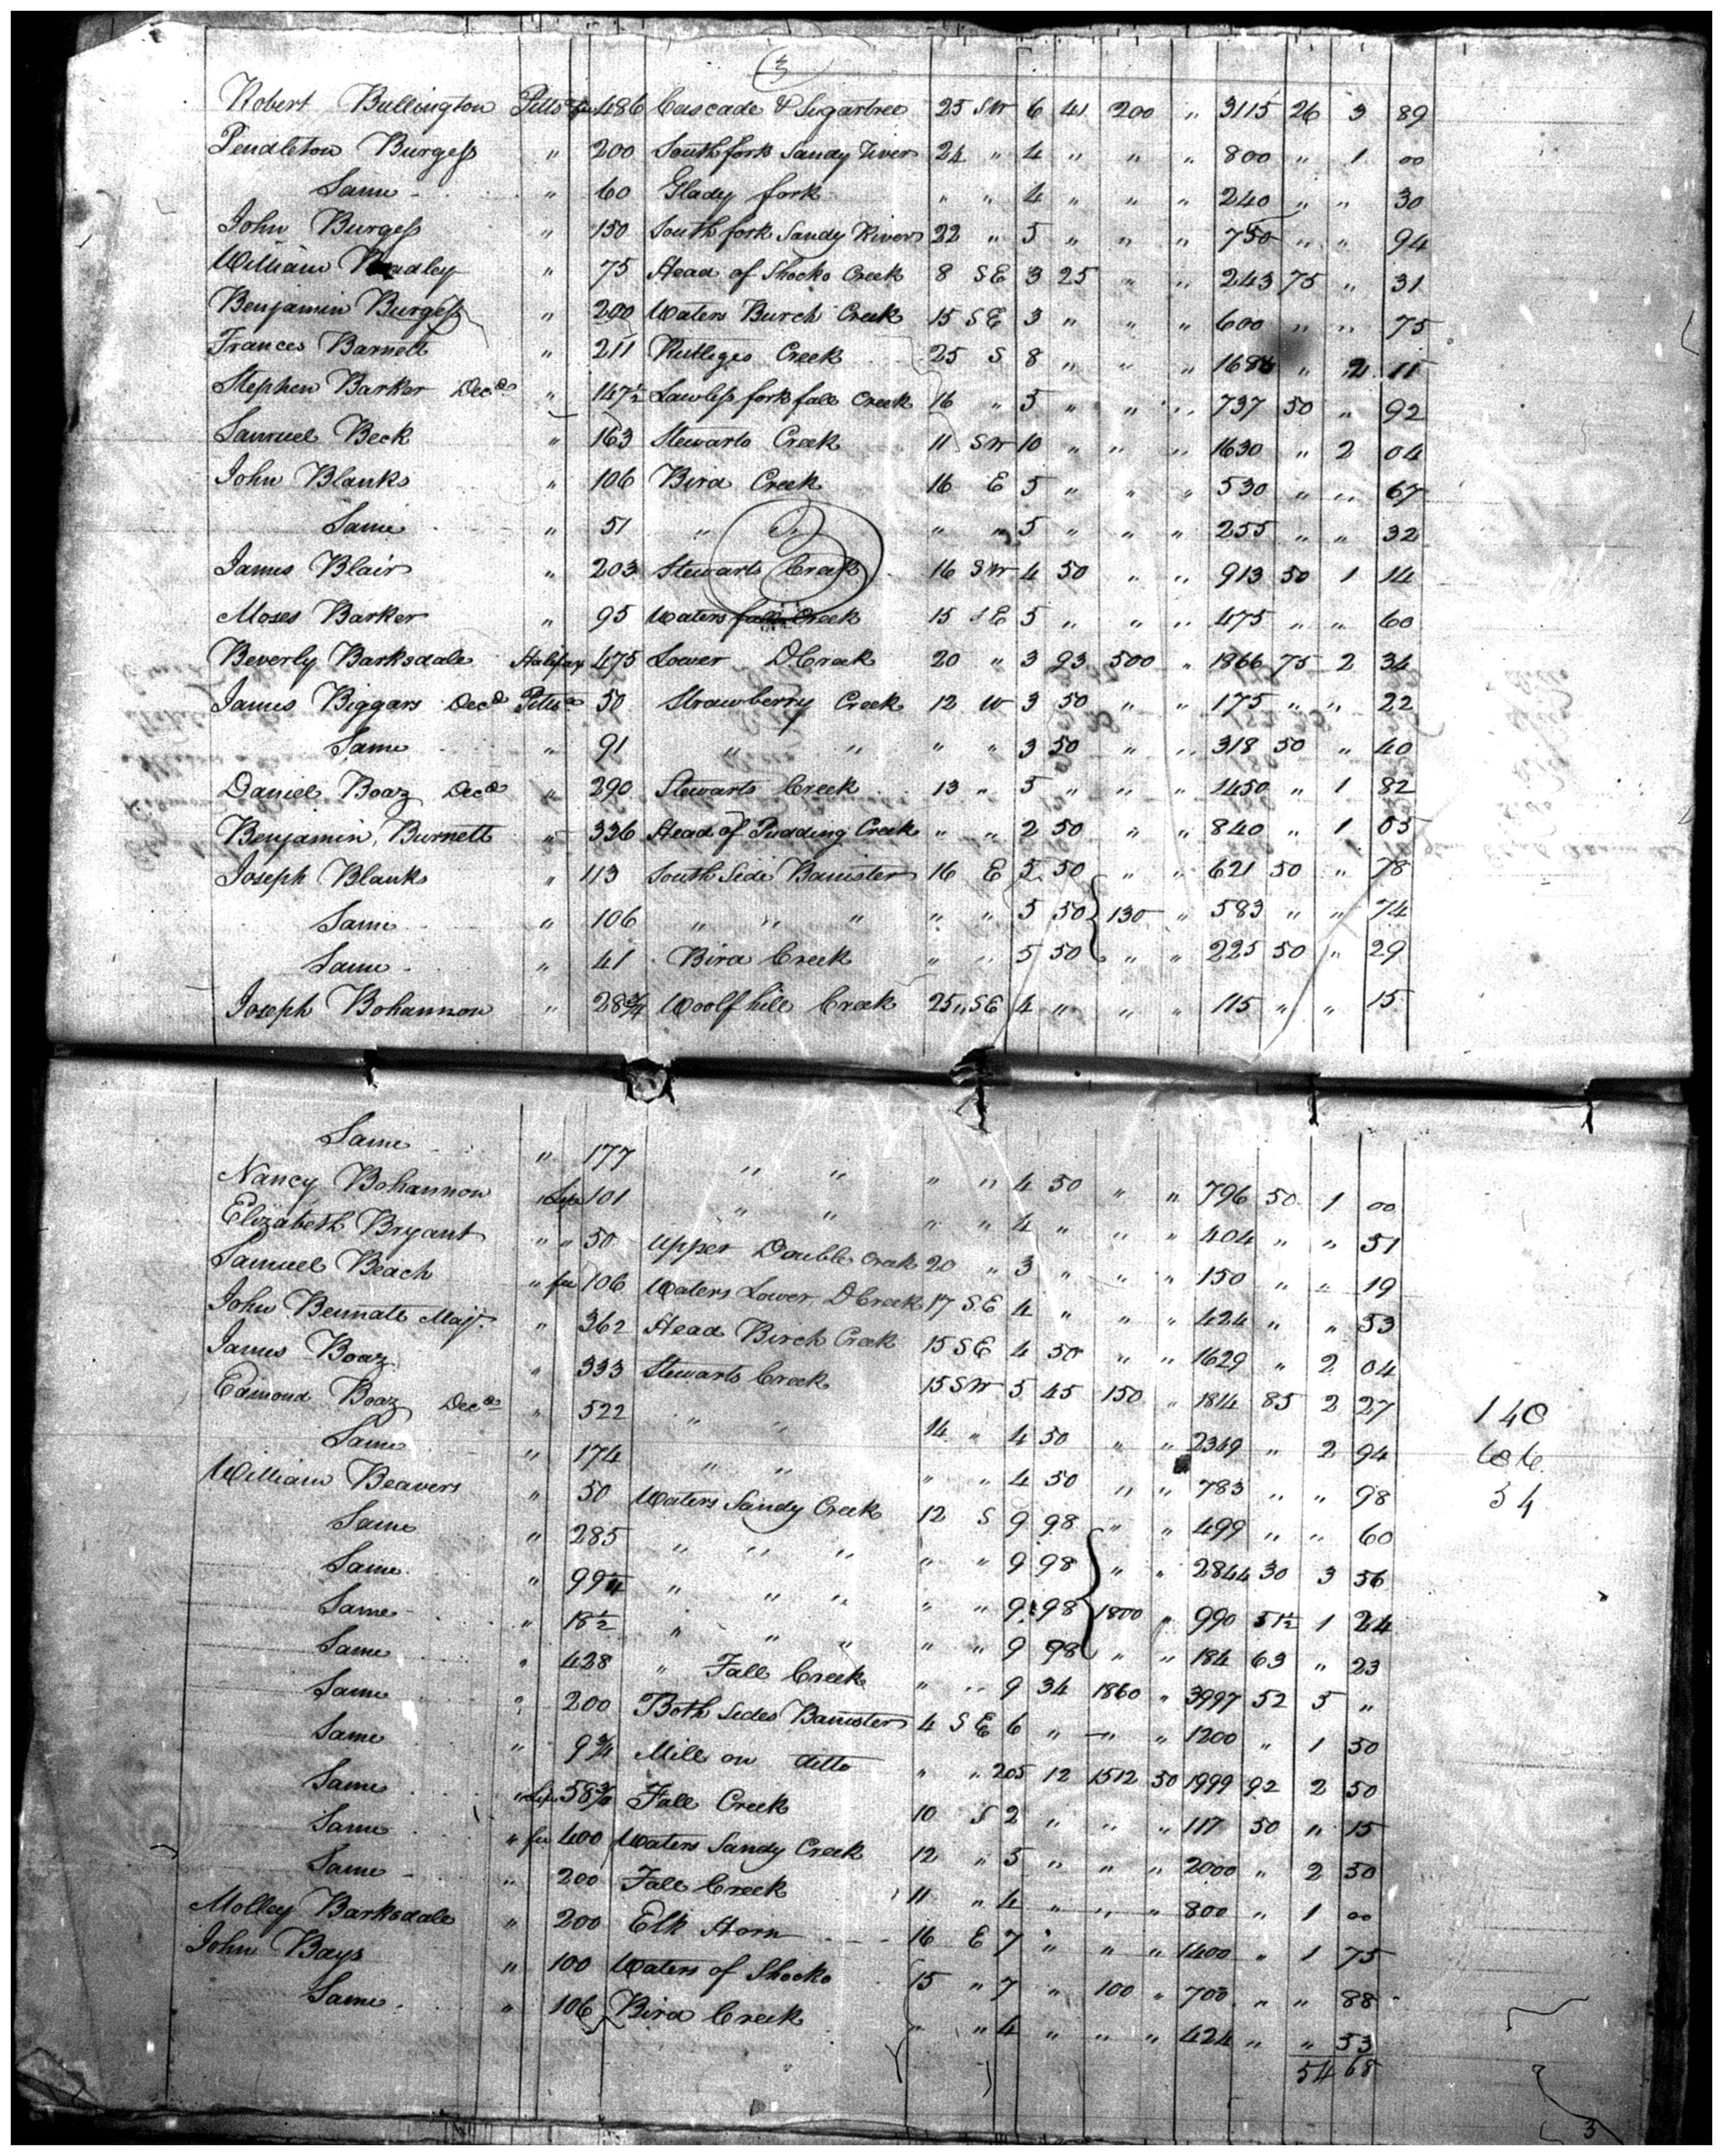 3
Robert Bullington Pittsa fee 486 Cascade & Sugartree 25 SW 6 41 200 " 3115 26 3 89
Pendleton Burgess " 200 South fork Sandy River 24 " 4 " " " 800 " 1 00
Same " 60 Glady fork " " 4 " " " 240 " " 30
John Burgess " 150 South fork Sandy River 22 " 5 " " " 750 " " 94
William Bradley " 75 Head of Shocko Creek 8 SE 3 25 " " 243 75 " 31
Benjamin Burgess " 200 Waters Burch Creek 15 SE 3 " " " 600 " " 75
Frances Barnett " 211 Rutleges Creek 25 S 8 " " " 1688 " 2 11
Stephen Barker Decd " 147½ Lawless fork fall Creek 16 " 5 " " " 737 50 " 92
Samuel Beck " 163 Stewarts Creek 11 SW 10 " " " 1630 " 2 04
John Blanks " 106 Bird Creek 16 E 5 " " " 530 " " 67
Same " 51 " " " " 5 " " " 255 " " 32
James Blair " 203 Stewarts Creek 16 SW 4 50 " " 913 50 1 14
Moses Barker " 95 Waters fall Creek 15 SE 5 " " " 475 " " 60
Beverly Barksdale Halifax 475 Lower D Creek 20 " 3 93 500 " 1866 75 2 34
James Biggars Decd Pittsa 50 Strawberry Creek 12 W 3 50 " " 175 " " 22
Same " 91 " " " " 3 50 " " 318 50 " 40
Daniel Boaz Decd " 290 Stewarts Creek 13 " 5 " " " 1450 " 1 82
Benjamin Burnett " 336 Head of Pudding Creek " " 2 50 " " 840 " 1 05
Joseph Blanks " 113 South Side Banister 16 E 5 50 " " 621 50 " 78
Same " 106 " " " " " 5 50 130 " 583 " " 74
Same " 41 Bird Creek " " 5 50 " " 225 50 " 29
Joseph Bohannon " 28¾ Woolf hill Creek 25 " SE 4 " " " 115 " " 15
Same " 177 " " " " 4 50 " " 796 50 1 00
Nancy Bohannon " Life 101 " " " " 4 " " " 404 " " 51
Elizabeth Bryant " " 50 Upper Double Creek 20 " 3 " " " 150 " " 19
Samuel Beach " fee 106 Waters Lower D Creek 17 SE 4 " " " 424 " " 53
John Bennate Majr. " 362 Head Birch Creek 15 SE 4 50 " " 1629 " 2 04
James Boaz " 333 Stewarts Creek 15 SW 5 45 150 " 1814 85 2 27
Edmond Boaz Decd " 522 " " 14 " 4 50 " " 2349 " 2 94
140
Same " 174 " " " " 4 50 " " 783 " " 98
606
William Beavers " 50 Waters Sandy Creek 12 S 9 98 " " 499 " " 60
54
Same " 285 " " " " " 9 98 " " 2844 30 3 56
Same " 99¼ " " " " " 9 98 1800 " 990 51½ 1 24
Same " 18½ " " " " " 9 98 " " 184 63 " 23
Same " 428 " Fall Creek " " 9 34 1860 " 3997 52 5 "
Same " 200 Both Sides Banister 4 SE 6 " " " 1200 " 1 50
Same " 9¾ Mill on ditto " " 205 12 1512 50 1999 92 2 50
Same " Life 58¾ Fall Creek 10 S 2 " " " 117 50 " 15
Same " fee 400 Waters Sandy Creek 12 " 5 " " " 2000 " 2 50
Same " 200 Fall Creek 11 " 4 " " " 800 " 1 00
Molley Barksdale " 200 Elk Horn 16 E 7 " " " 1400 " 1 75
John Bays " 100 Waters of Shocko 15 " 7 " 100 " 700 " " 88
Same " 106 Bird Creek " " 4 " " " 424 " " 53
54 68
3